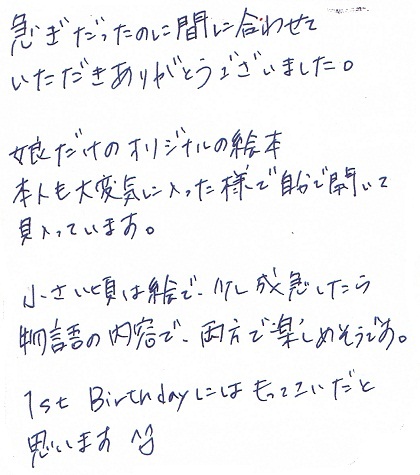 急ぎだったのに間に合わせて
いただきありがとうございました。
娘だけのオリジナルの絵本
本人も大変気に入った様で自分で開いて
見入っています。
小さい頃は絵で、少し成長したら
物語の内容で、両方で楽しめそうです。
1st Birthdayにはもってこいだと
思います ^^